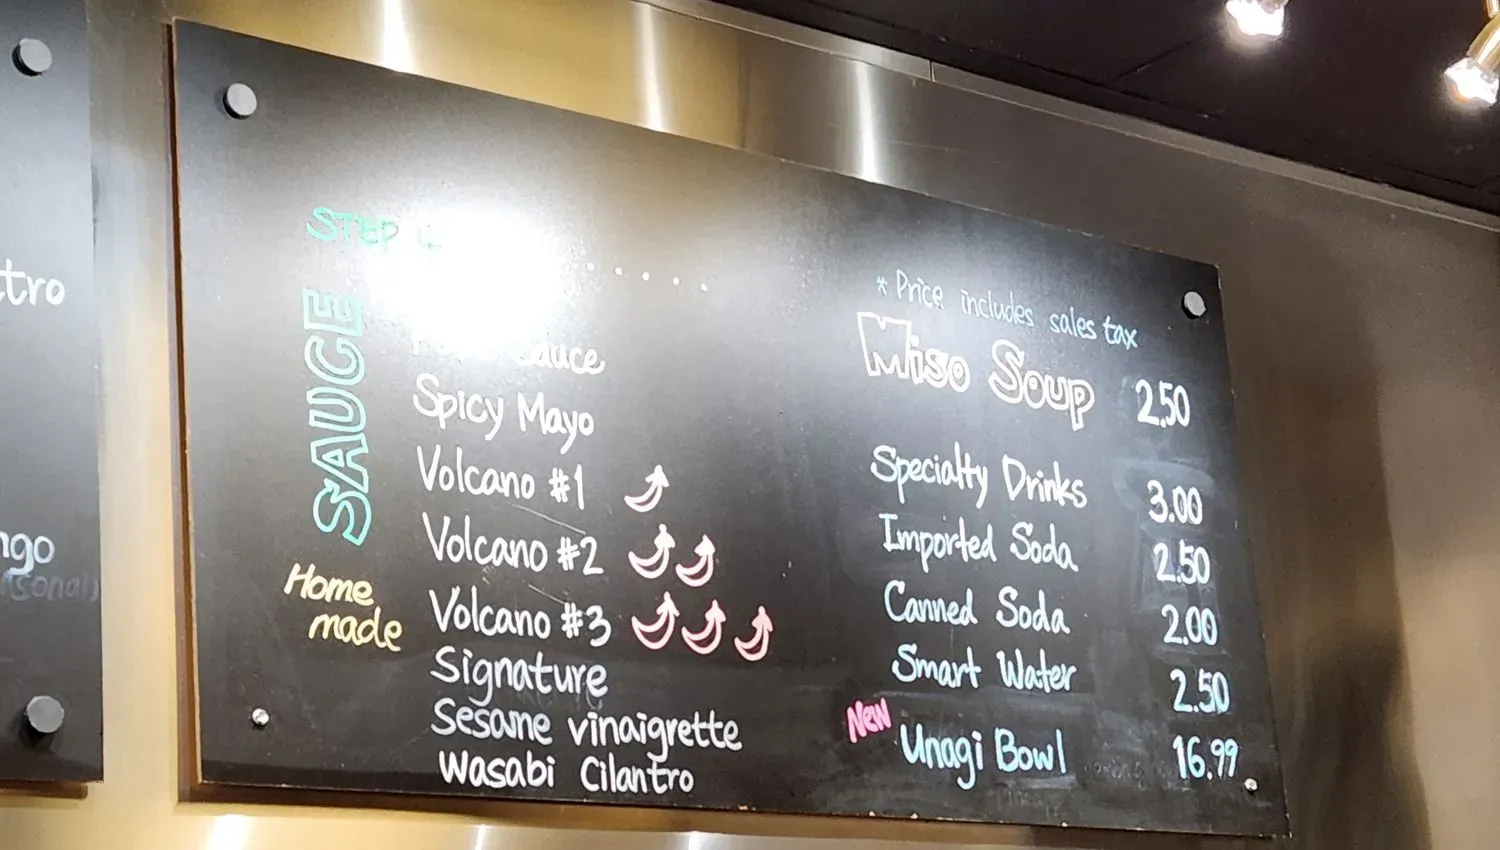 tro
ngo
STEP 4
SAUCE
Home
made
Sauce
Spicy Mayo
Volcano #1
Volcano #2
Volcano #3
Signature
Sesame vinaigrette
Wasabi Cilantro
* Price includes sales tax
Miso Soup 2.50
Specialty Drinks 3.00
Imported Soda 2.50
Canned Soda 2.00
Smart Water 2.50
New Unagi Bowl 16.99